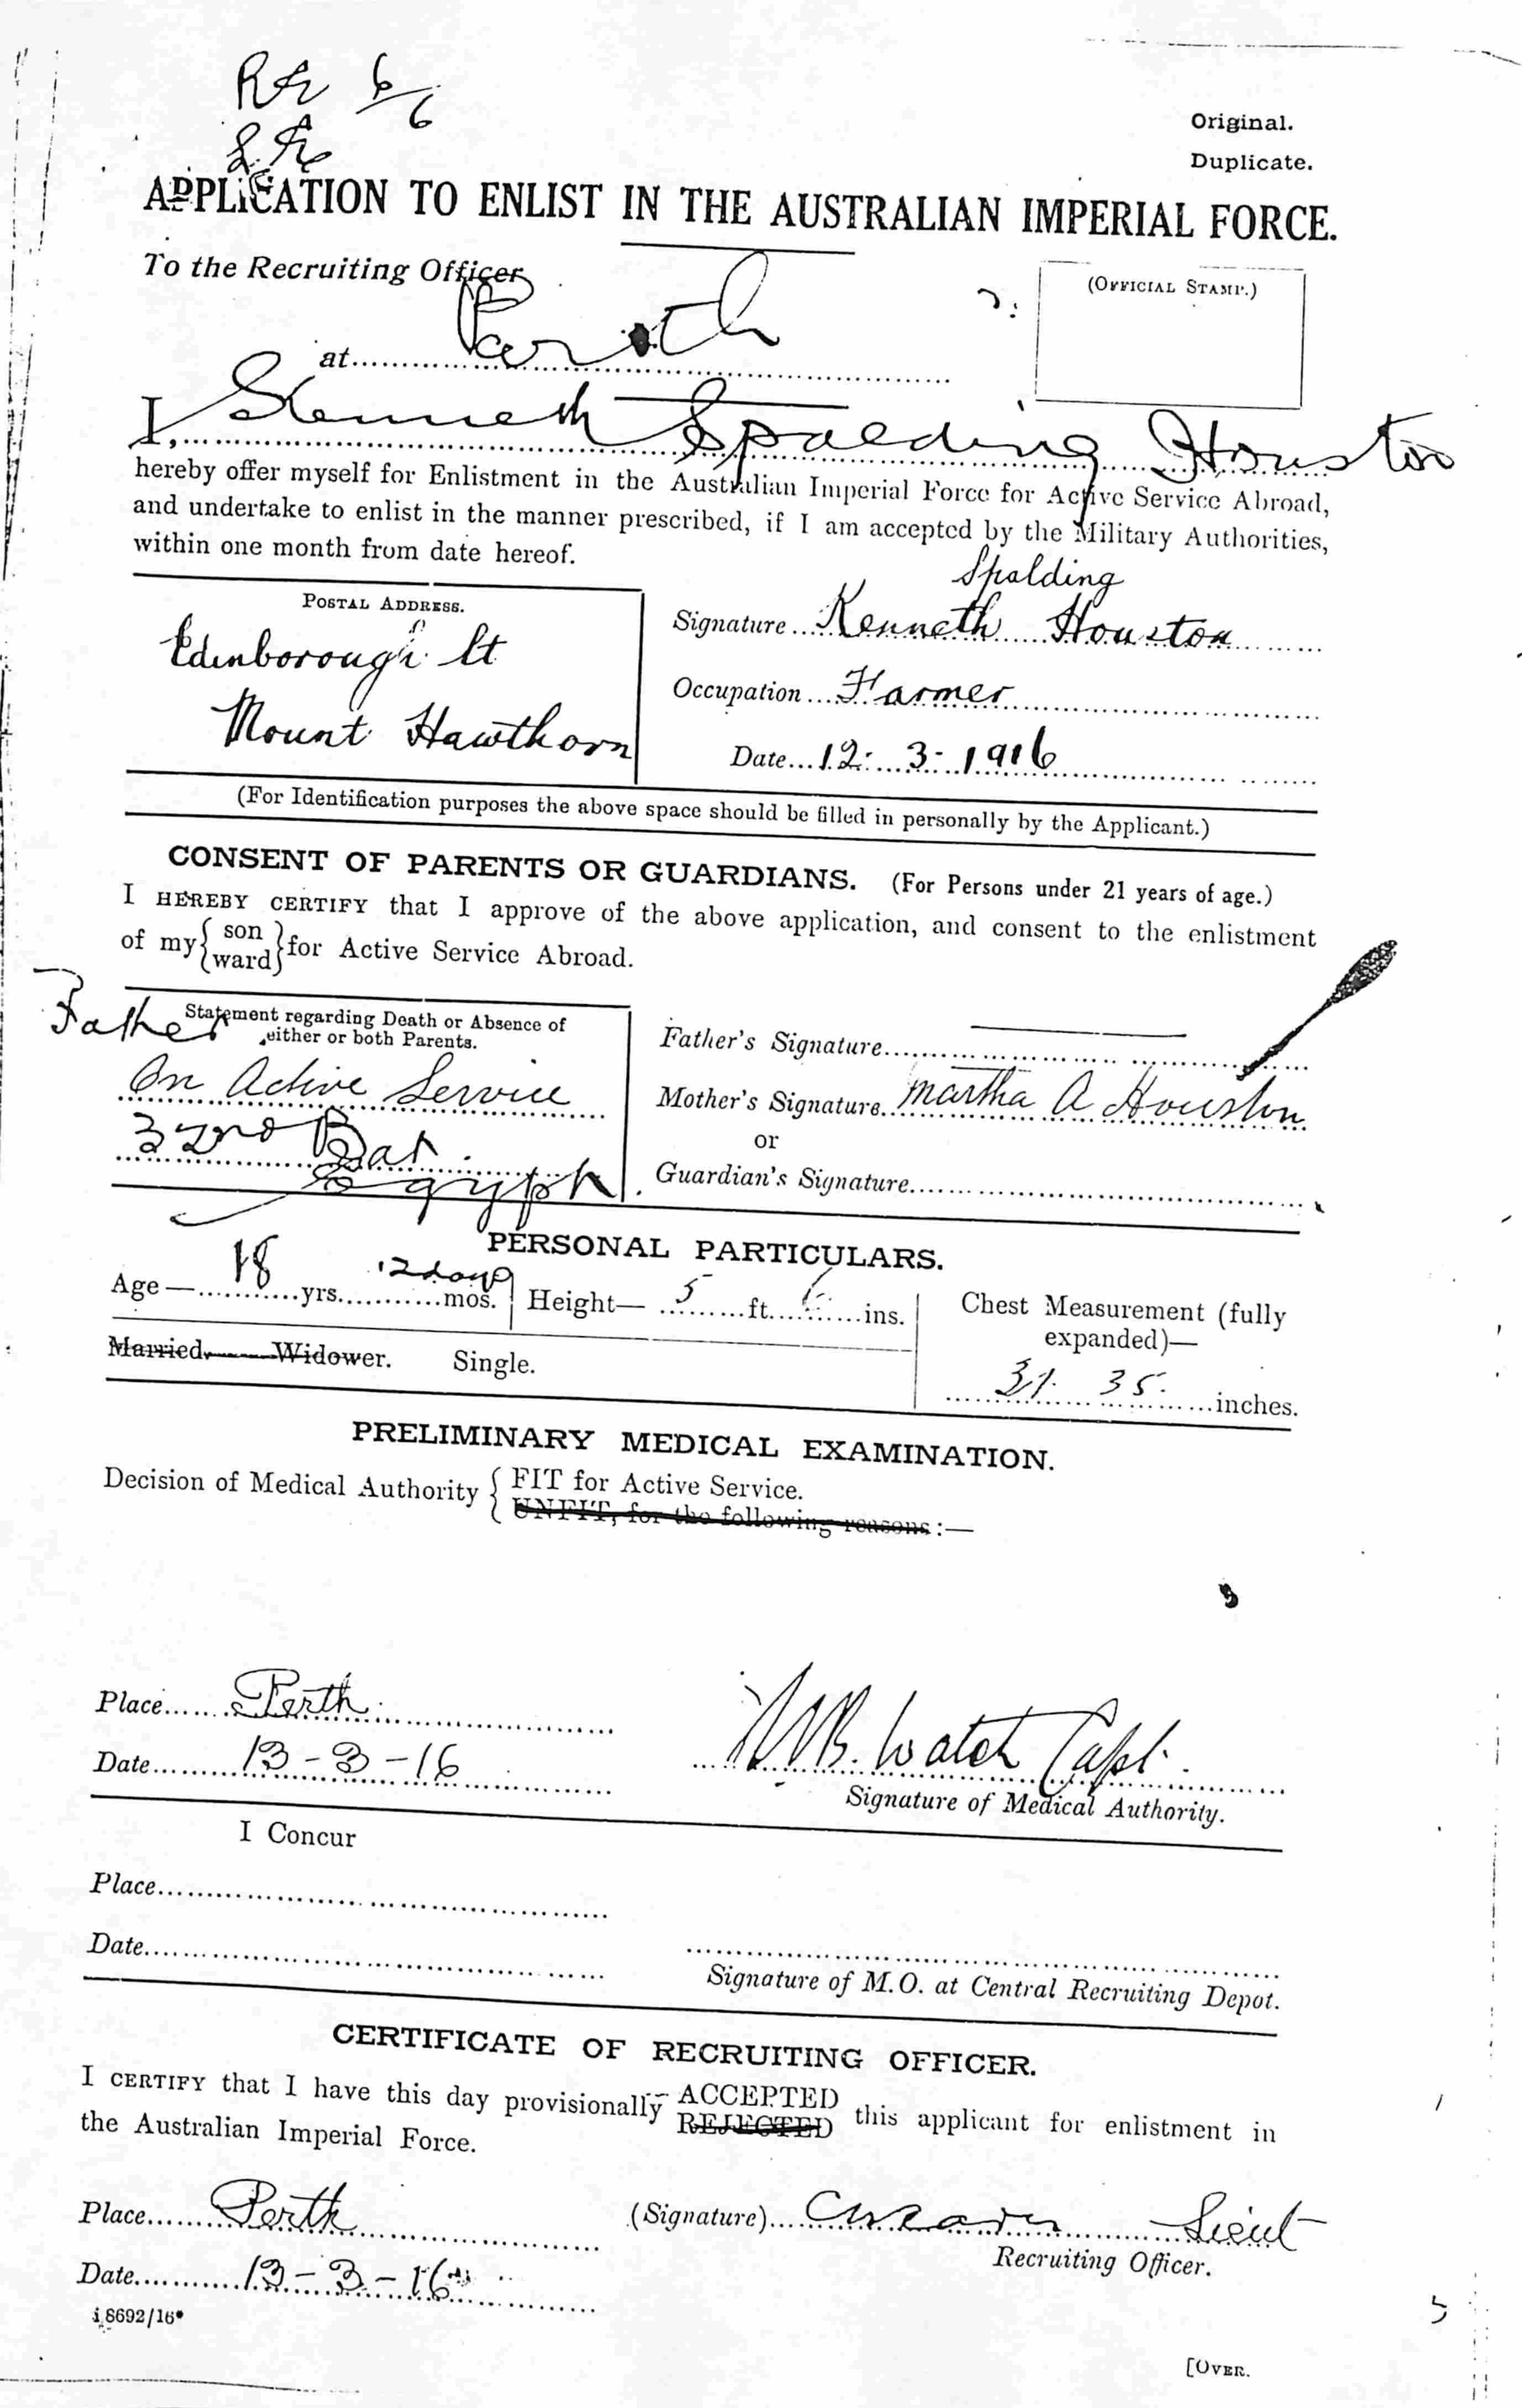 6/6
Original.
Duplicate.
APPLICATION TO ENLIST IN THE AUSTRALIAN IMPERIAL FORCE.
To the Recruiting Officer
(OFFICIAL STAMP.)
at Perth
I, Kenneth Spalding Houston
hereby offer myself for Enlistment in the Australian Imperial Force for Active Service Abroad,
and undertake to enlist in the manner prescribed, if I am accepted by the Military Authorities,
within one month from date hereof.
POSTAL ADDRESS.
Edinborough St
Mount Hawthorn
Spalding
Signature Kenneth Houston
Occupation Farmer
Date 12. 3. 1916
(For Identification purposes the above space should be filled in personally by the Applicant.)
CONSENT OF PARENTS OR GUARDIANS. (For Persons under 21 years of age.)
I HEREBY CERTIFY that I approve of the above application, and consent to the enlistment
of my { son ward } for Active Service Abroad.
Statement regarding Death or Absence of
either or both Parents.
Father
On Active Service
32nd Bat.
Egypt.
Father's Signature
Mother's Signature Martha A Houston
or
Guardian's Signature
PERSONAL PARTICULARS.
Age — 18 yrs. 12 days mos. Height— 5 ft. 6 ins. Chest Measurement (fully
expanded)—
31. 35. inches.
Married. Widower. Single.
PRELIMINARY MEDICAL EXAMINATION.
Decision of Medical Authority { FIT for Active Service.
UNFIT, for the following reasons :—
Place Perth
Date 13-3-16
Watch Capt.
Signature of Medical Authority.
I Concur
Place
Date
Signature of M.O. at Central Recruiting Depot.
CERTIFICATE OF RECRUITING OFFICER.
I CERTIFY that I have this day provisionally ACCEPTED
REJECTED this applicant for enlistment in
the Australian Imperial Force.
Place Perth
(Signature) Lieut
Recruiting Officer.
Date 13-3-16
8692/16
[OVER.